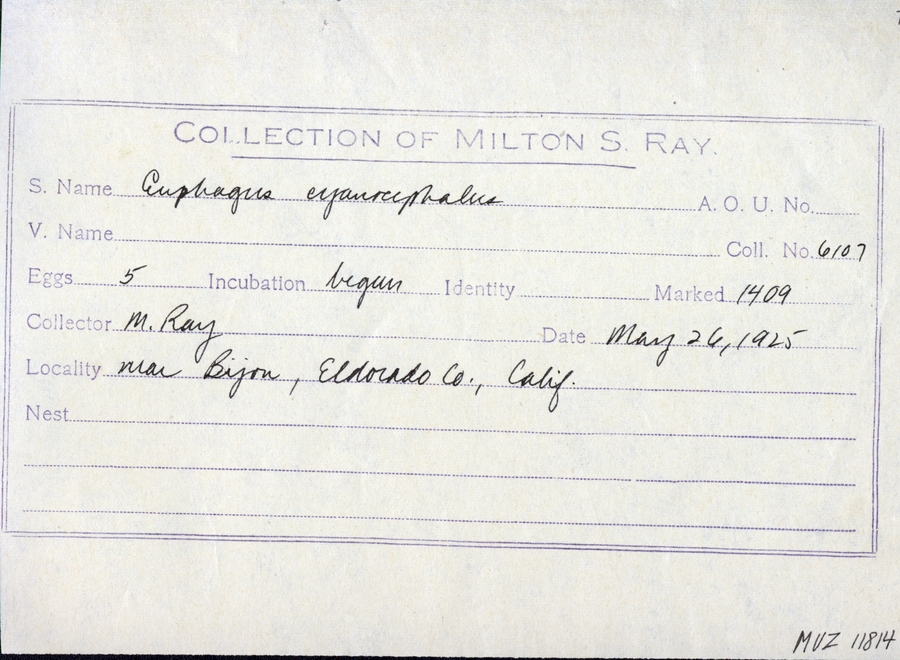 COLLECTION OF MILTON S. RAY.
S. Name Euphagus cyanocephalus A. O. U. No.
V. Name Coll. No. 6107
Eggs 5 Incubation begun Identity Marked 1409
Collector M. Ray Date May 26, 1925
Locality near Bijou, Eldorado Co., Calif.
Nest
MVZ 11814